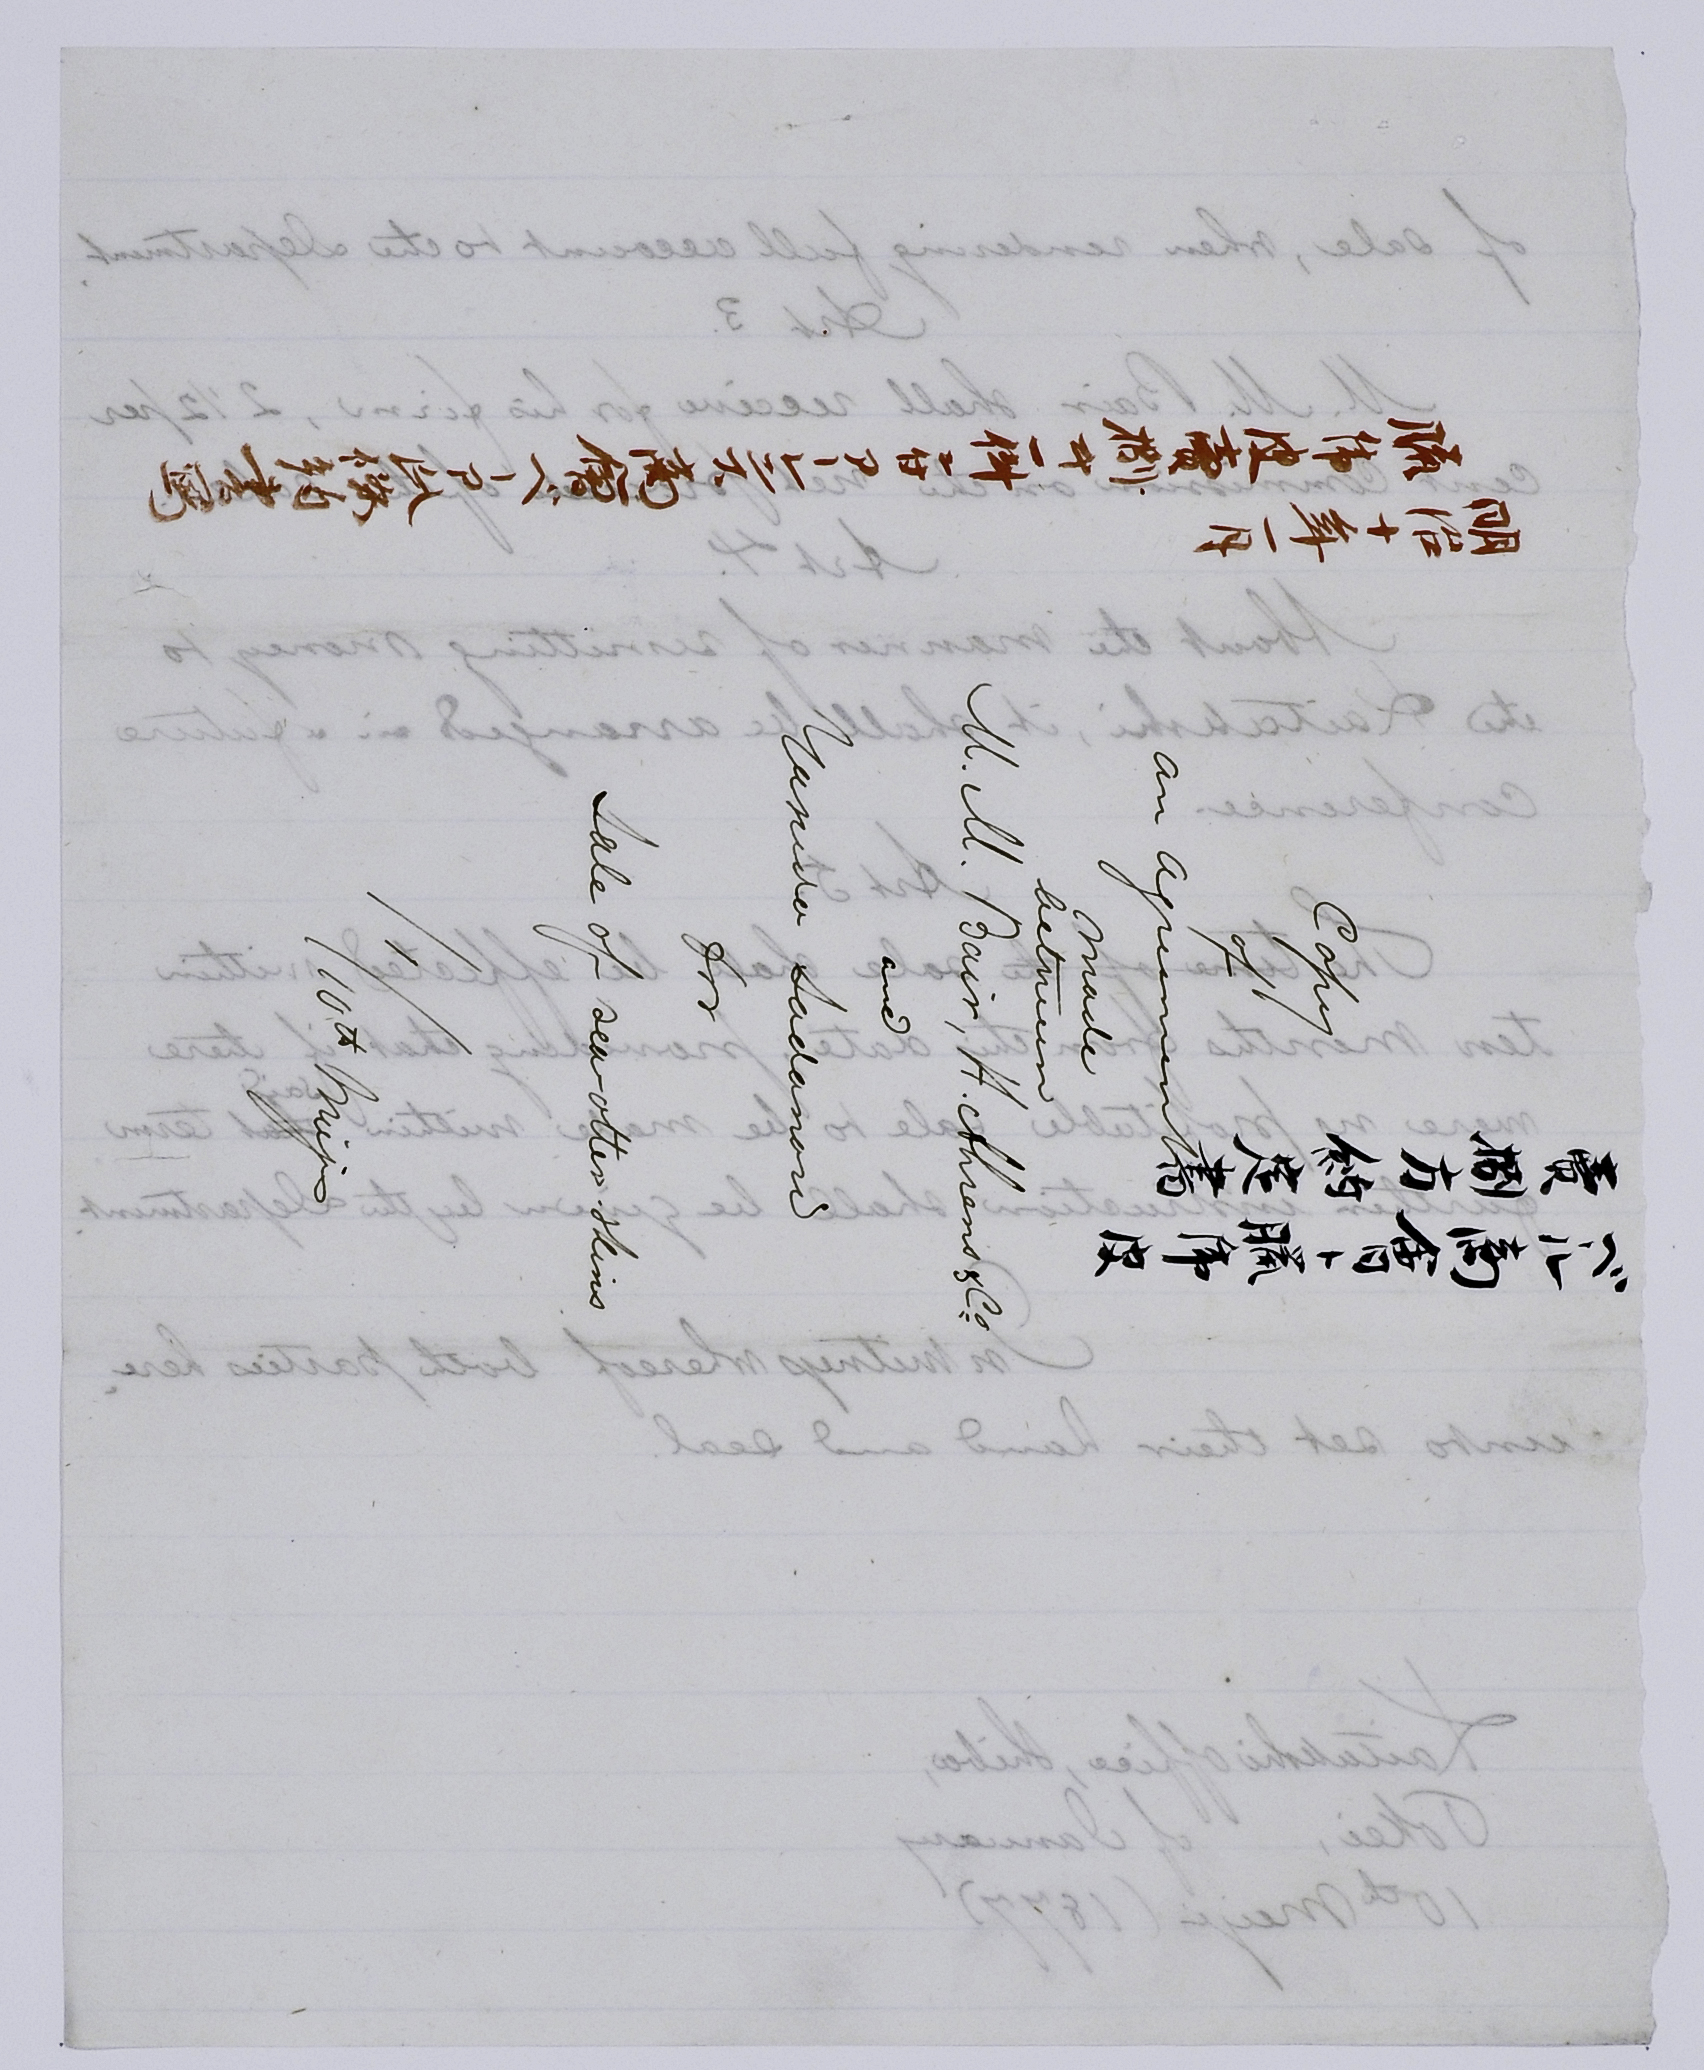 明治十年一月
臘虎皮賣捌キ一件ニ付
ベーア商會ト臘虎皮
賣捌方約定書
Copy
of
an agreement
made
between
M. M. Bair, H. Ahrens & Co.
and
Yamida Sadanori
for
Sale of sea-otter skins
1/10th Meiji
of sale, when rendering full account to the Department.
Art 3.
M. M. Bair shall receive for his firm, 2 1/2 per
cent commission on the net
Art 4.
About the manner of remitting money to
the Kaitakshi, it shall be arranged in a future
conference.
Art 5
The sale shall be effected within
ten months from the date providing that if there
were no profitable sale to be made within said term
further instruction shall be given by the Department.
In witness whereof both parties here
unto set their hand and seal.
Kaitakshi office, Shiba,
Tokei, of January
10th Meiji (1877)